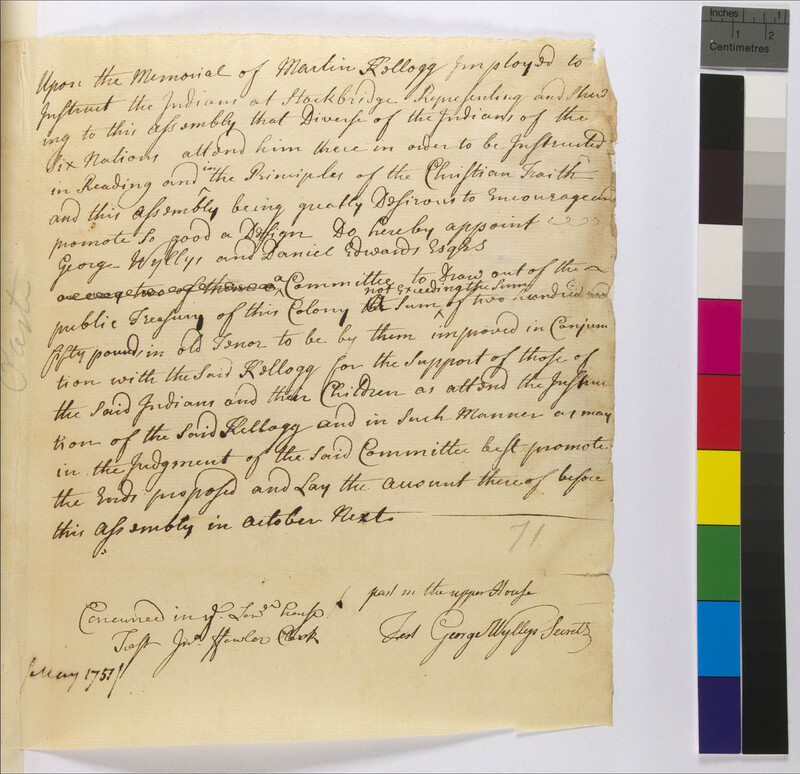 Upon the Memorial of Martin Kellogg Imployed to
Instruct the Indians at Stockbridge Representing and Shew
ing to this Assembly that Diverse of the Indians of the
Six Nations attend him there in order to be Instructed
in Reading and in the Principles of the Christian Faith
and this Assembly being greatly Desirous to Encourage and
promote so good a Design Do hereby appoint
George Wyllys and Daniel Edwards Esqrs
or any two of them a a Committee to Draw out of the
public Treasury of this Colony not Exceeding the Sum Sum of two hundred and
fifty pounds in old Tenor to be by them improved in Conjunc
tion with the Said Kellogg for the Support of those of
the Said Indians and their Children as attend the Instruc
tion of the Said Kellogg and in Such Manner as may
in the Judgment of the Said Committee best promote
the Ends proposed and Lay the account thereof before
this Assembly in October Next
71
past in the upper House
Test George Wyllys Secretr
Concurred in ye Lowr house
Test Jno Fowler Clerk
May 1751
Inches 1
1 2
Centimetres